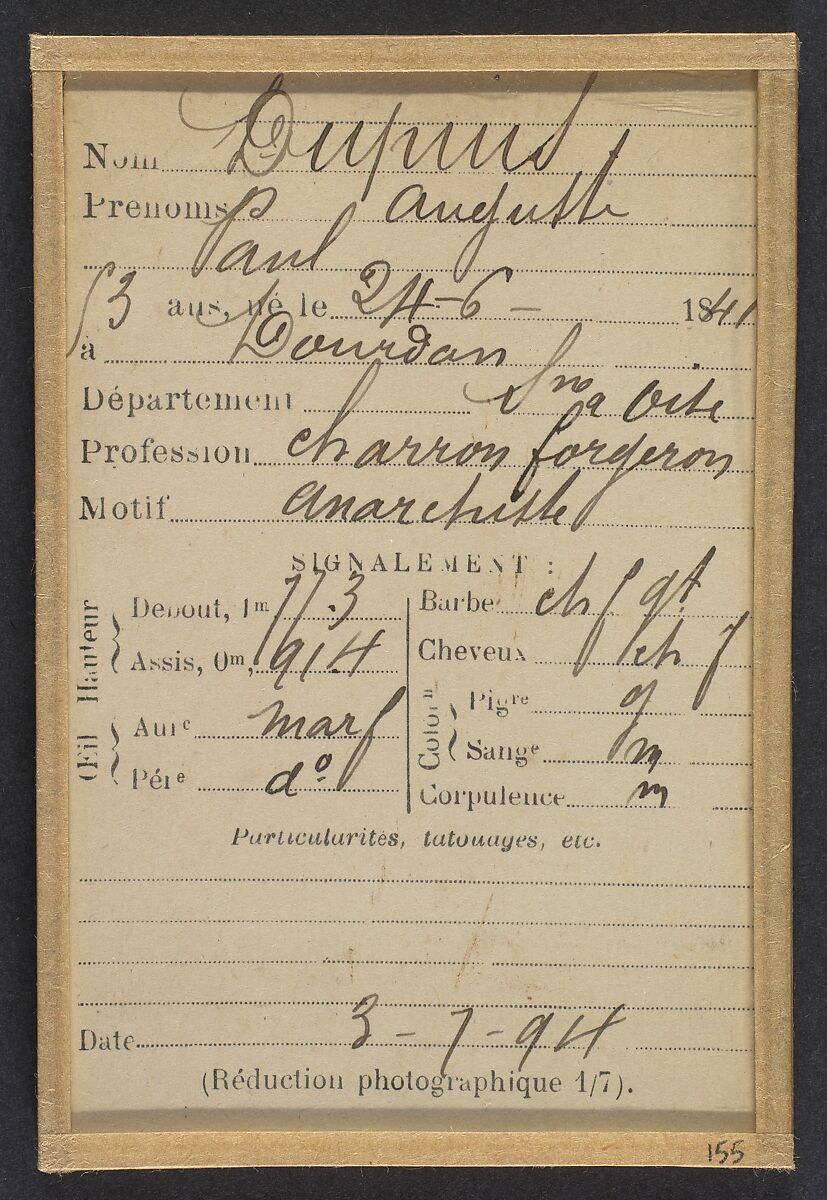 Nom Dupuis
Prénoms Auguste
Paul
53 ans, né le 24-6- 1841
à Dourdan
Département Sne & Oise
Profession charron forgeron
Motif anarchiste
SIGNALEMENT :
Hauteur
Debout, 1m 77.3
Assis, 0m, 91.4
Œil
Aurᵉ mar f
Périᵉ dº
Barbe ch f gt
Cheveux ch f
Colorⁿ
Pigʳᵉ g
Sangᵉ m
Corpulence m
Particularités, tatouages, etc.
Date 3-7-94
(Réduction photographique 1/7).
155